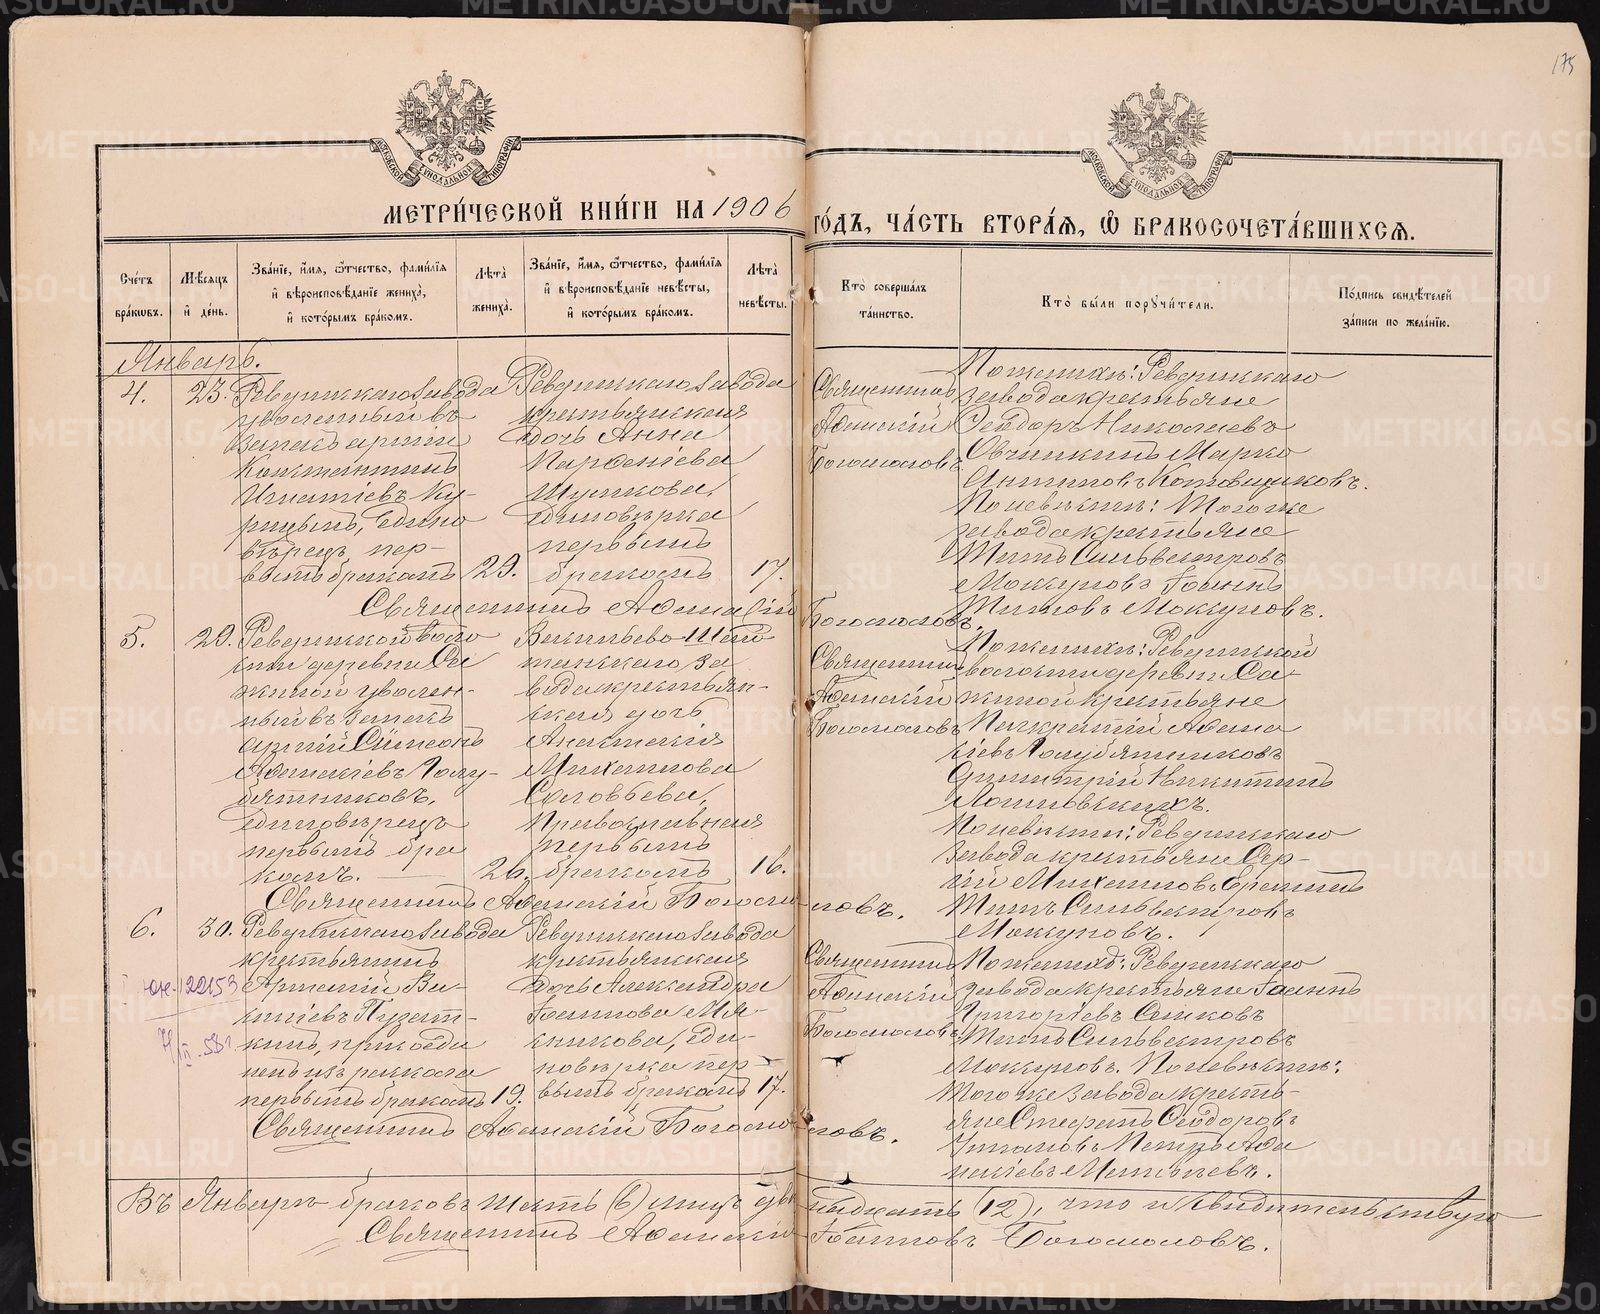 175
МОСКОВСКОЙ СѴНОДАЛЬНОЙ ТИПОГРАФІИ
МОСКОВСКОЙ СѴНОДАЛЬНОЙ ТИПОГРАФІИ
МЕТРИ́ЧЕСКОЙ КНИ́ГИ НА 1906 ГО́ДЪ, ЧА́СТЬ ВТОРА́Я, Ѽ БРАКОСОЧЕТА́ВШИХСЯ.
Сче́тъ бра́кѡвъ.
Мѣ́сяцъ и҆ де́нь.
Зва́нїе, и҆́мя, ѻ҆́тчество, фами́лїя и҆ вѣроисповѣ́данїе жениха̀, и҆ кото́рымъ бра́комъ.
Лѣ́та жениха̀.
Зва́нїе, и҆́мя, ѻ҆́тчество, фами́лїя и҆ вѣроисповѣ́данїе невѣ́сты, и҆ кото́рымъ бра́комъ.
Лѣ́та невѣ́сты.
Кто̀ соверша́лъ та́инство.
Кто̀ бы́ли порꙋчи́тели.
По́дпись свидѣ́телей за́писи по жела́нїю.
Январь.
4.
23.
Ревдинскаго завода
уволенный въ
запасъ арміи
Константинъ
Игнатіевъ Ку-
рицынъ, едино
вѣрецъ, пер-
вымъ бракомъ
29.
Ревдинскаго завода
крестьянская
дочь Анна
Парѳеніева
Шумкова,
единовѣрка
первымъ
бракомъ
17.
Священникъ
Аѳанасій
Богомоловъ
По женихѣ: Ревдинскаго
завода крестьяне
Ѳеодоръ Николаевъ
Овчинкинъ Марко
Антиповъ Котовщиковъ.
По невѣстѣ: Того же
завода крестьяне
Титъ Сильвестровъ
Мокруповъ Іоаннъ
Титовъ Мокруповъ.
Священникъ Аѳанасій Богомоловъ.
5.
29.
Ревдинской воло
сти деревни Са
жиной уволен-
ный въ запасъ
арміи Симеонъ
Аѳанасіевъ Голу-
бятниковъ,
единовѣрецъ
первымъ бра
комъ.
26.
Васильево-Шай
танскаго за
вода крестьян-
ская дочь
Анастасія
Михаилова
Соловьева,
Православная
первымъ
бракомъ
16.
Священникъ
Аѳанасій
Богомоловъ
По женихѣ: Ревдинской
волости деревни Са-
жиной крестьяне
Панкратій Аѳана
сіевъ Голубятниковъ
Димитрій Никитинъ
По невѣстѣ: Ревдинскаго
завода крестьяне Сер-
гій Михаиловъ
Титъ Сильвестровъ
Мокруповъ.
Священникъ Аѳанасій Богомоловъ.
6.
30.
Ревдинскаго завода
крестьянинъ
Арсеній Ва-
силіевъ
кинъ, присоеди
ненъ изъ раскола
первымъ бракомъ
19.
Ревдинскаго завода
крестьянская
дочь Александра
Іоаннова Мя-
сникова, еди-
новѣрка пер-
вымъ бракомъ
17.
Священникъ
Аѳанасій
Богомоловъ
По женихѣ: Ревдинскаго
завода крестьяне Іоаннъ
Григоріевъ
Титъ Сильвестровъ
Мокруповъ. По невѣстѣ:
Того же завода кресть-
яне Стефанъ Ѳеодоровъ
Петръ Аѳа
насіевъ
Священникъ Аѳанасій Богомоловъ.
Въ Январѣ браковъ шесть (6) лицъ двѣнадцать (12), что и свидѣтельствую
Священникъ Аѳанасій Іоанновъ Богомоловъ.
METRIKI.GASO-URAL.RU